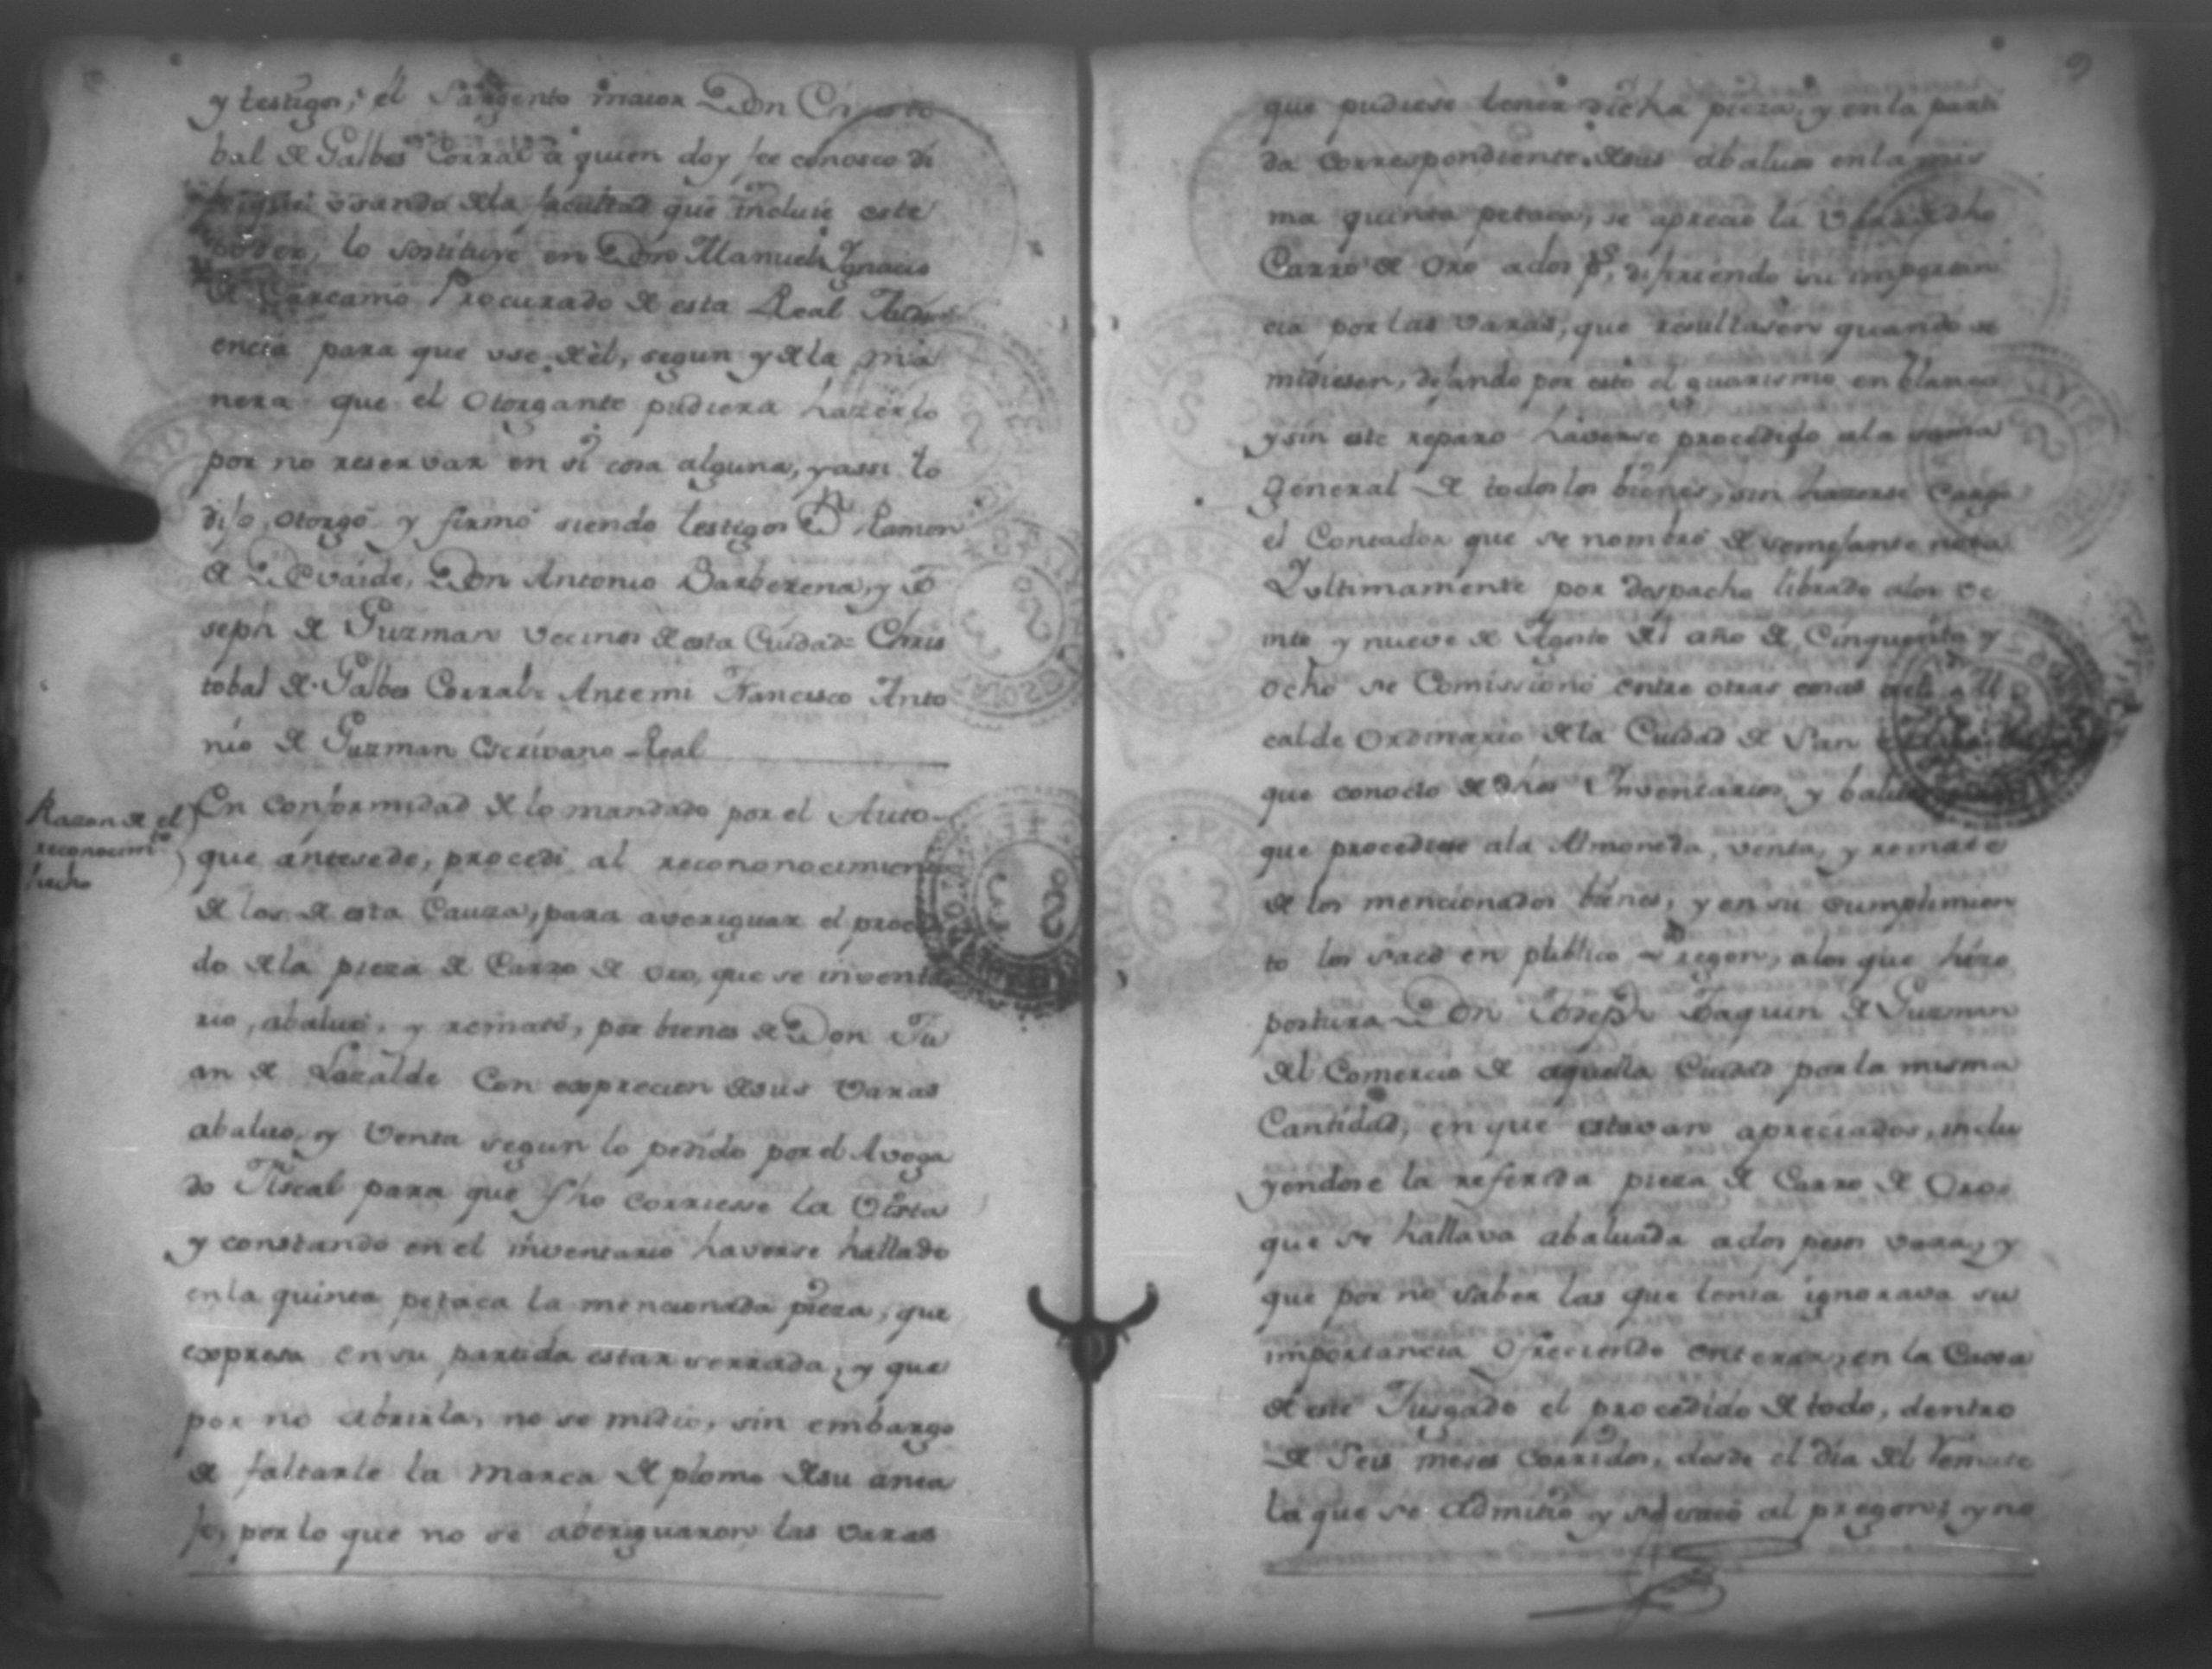 y testigos, el Sargento maior Don Cristo
bal de Galbes Corral a quien doy fee conosco di
que usando dela facultad que incluie este
poder, lo sostituye en Don Manuel Ignacio
de Carcamo Procurado de esta Real Audi
encia para que use del, segun y dela ma
nera que el Otorgante pudiera hazerlo
por no reservar en si cosa alguna, y assi lo
dijo, otorgó y firmó siendo testigos Dn Ramon
de Don Antonio Barberena, y Jo
seph de Guzman vecinos desta Ciudad= Chris
tobal de Galbes Corral= Antemi Francisco Anto
nio de Guzman Escrivano Real
Razon de el
reconocimto
hecho
En conformidad de lo mandado por el Auto
que antesede, procedi al recononocimien
de los de esta Cauza, para averiguar el proce
do dela pieza de Carro de oro, que se inventa
rio, abaluó, y remató, por bienes de Don Ju
an de Lazalde Con exprecion desus varas
abaluo, y Venta segun lo pedido por el Avoga
do Fiscal para que fho corriesse la Vista
y constando en el inventario haverse hallado
enla quinta petaca la mencionada pieza, que
expresa en su partida estar serrada, y que
por no abrirla, no se midio, sin embargo
de faltarle la marca de plomo desu anea
je, por lo que no se aberiguaron las varas
9
que pudiese tener dicha pieza, y enla parti
da correspondiente desus abaluos enla mis
ma quinta petaca, se aprecio la Vara de dho
Carro de Oro ados ps, difiriendo su importan
cia por las varas, que resultasen quando se
midiesen, dejando por esto el guarismo en blanco
y sin este reparo haverse procedido ala suma
general de todos los bienes, sin hazerse cargo
el Contador que se nombró de semejante nota
Y ultimamente por despacho librado alos ve
inte y nueve de Agosto del año de Cinquenta y
ocho se Comissionó entre otras cosas al Al
calde Ordinario dela Ciudad de San
que conocio de dhos Inventarios, y
que procediese ala Almoneda, venta, y remate
de los mencionados bienes, y en su cumplimien
to los sacó en publico Pregon, alos que hizo
postura Don Joseph Joaquin de Guzman
del Comercio de aquella Ciudad por la misma
Cantidad, en que estavan apreciados, inclu
yendose la referida pieza de Carro de Oro,
que se hallava abaluada ados pesos vara, y
que por no saber las que tenia ignorava su
importancia Ofreciendo enterar, en la Caxa
de este Jusgado el procedido de todo, dentro
de Seis meses corridos, desde el dia del remate
la que se admitio y se sacó al pregon, y no